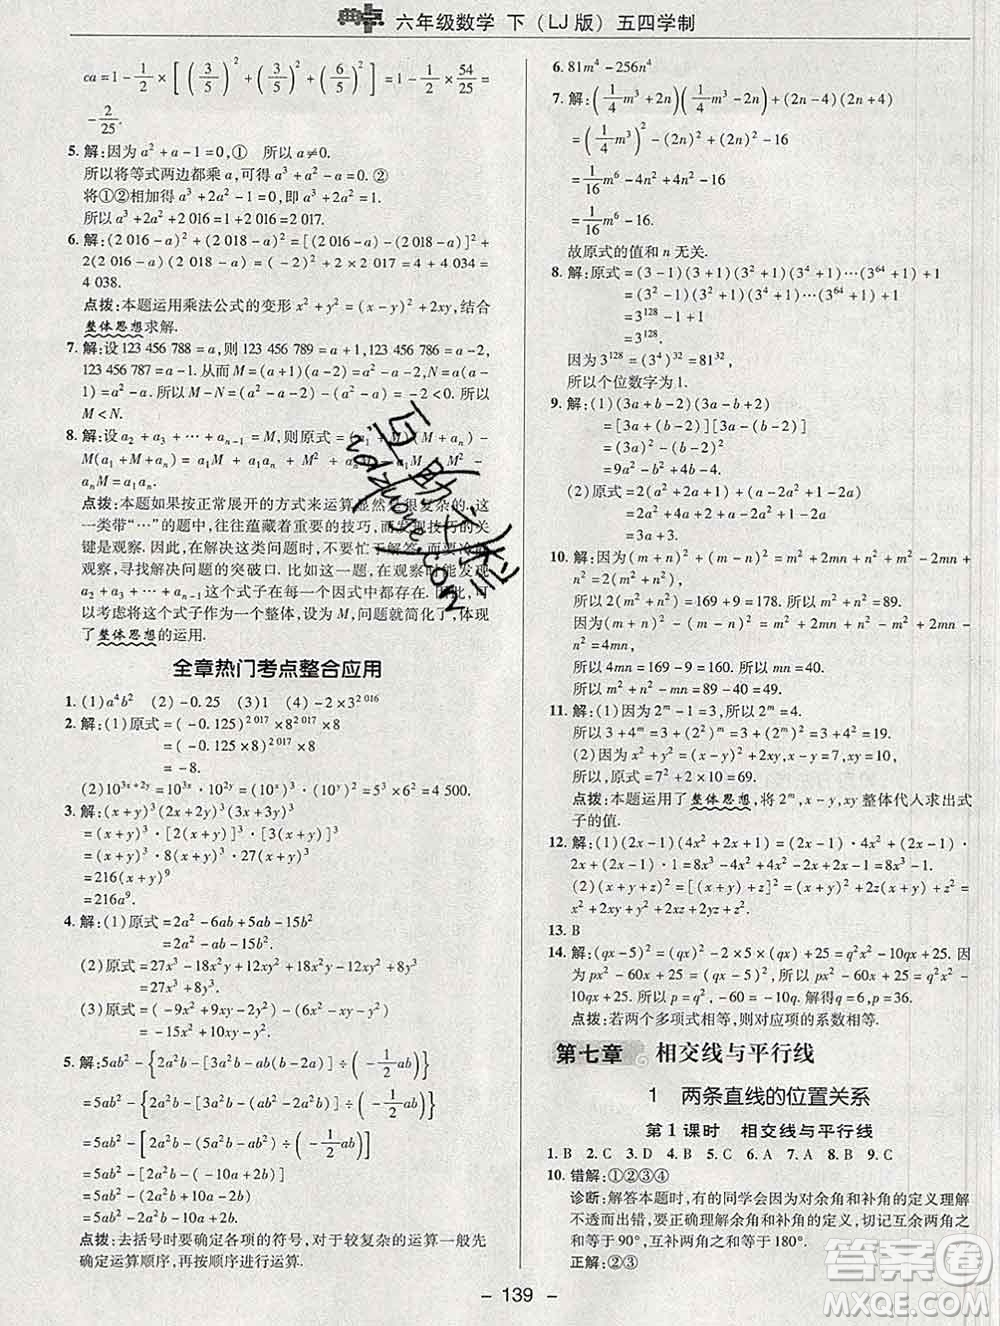 典点 六年级数学 下（LJ版）五四学制
ca=1-1/2×[(3/5)²+(3/5)²+(6/5)²]=1-1/2×54/25=
-2/25.
5. 解:因为a²+a-1=0,① 所以a≠0.
所以将等式两边都乘a,可得a³+a²-a=0. ②
将①②相加得a³+2a²-1=0,即a³+2a²=1.
所以a³+2a²+2 016=1+2 016=2 017.
6. 解:(2 016-a)²+(2 018-a)²=[(2 016-a)-(2 018-a)]²+
2(2 016-a)(2 018-a)=(-2)²+2×2 017=4+4 034=
4 038.
点拨:本题运用乘法公式的变形x²+y²=(x-y)²+2xy,结合
整体思想求解.
7. 解:设123 456 788=a,则123 456 789=a+1,123 456 786=a-2,
123 456 787=a-1.从而M=(a+1)(a-2)=a²-a-2,N=a(a-
1)=a²-a.所以M-N=(a²-a-2)-(a²-a)=-2<0,所以
M<N.
8. 解:设a₂+a₃+…+aₙ₋₁=M,则原式=(a₁+M)(M+aₙ)-
M(a₁+M+aₙ)=a₁M+a₁aₙ+M²+aₙM-a₁M-M²-
aₙM=a₁aₙ.
点拨:本题如果按正常展开的方式来运算显然是很复杂的,这
一类带“…”的题中,往往蕴藏着重要的技巧,而发现技巧的关
键是观察.因此,在解决这类问题时,不要忙于解答,而要冷静
观察,寻找解决问题的突破口.比如这一题,在观察时能发现
a₂+a₃+…+aₙ₋₁这个式子在每一个因式中都存在.因此,可
以考虑将这个式子作为一个整体,设为M,问题就简化了,体现
了整体思想的运用.
全章热门考点整合应用
1. (1)a⁴b² (2)-0.25 (3)1 (4)-2×3²⁰¹⁶
2. 解:(1)原式=(-0.125)²⁰¹⁷×8²⁰¹⁷×8
=(-0.125×8)²⁰¹⁷×8
=-8.
(2)10³ˣ⁺²ʸ=10³ˣ·10²ʸ=(10ˣ)³·(10ʸ)²=5³×6²=4 500.
3. 解:(x+y)³(2x+2y)³(3x+3y)³
=(x+y)³·[2(x+y)]³·[3(x+y)]³
=(x+y)³·8(x+y)³·27(x+y)³
=216(x+y)⁹
=216a⁹.
4. 解:(1)原式=2a²-6ab+5ab-15b²
=2a²-ab-15b².
(2)原式=27x³-18x²y+12xy²+18x²y-12xy²+8y³
=27x³+8y³.
(3)原式=(-9x²+9xy-6x²+xy-y²)
=-15x²+10xy-y².
5. 解:5ab²-{2a²b-[3ab²-ab(b-2a)]÷(-1/2ab)}
=5ab²-{2a²b-[3ab²-(ab²-2a²b)]÷(-1/2ab)}
=5ab²-[2a²b-(5a²b+2ab²)÷(-1/2ab)]
=5ab²-(2a²b+10a+2b)]
=5ab²-2a²b-10a-
点拨:去括号时要确定各项的符号,对于较复杂的运算一般先
确定运算顺序,再按顺序进行运算.
6. 81m⁴-256n⁴
7. 解:(1/4m³+2n)(1/4m³-2n)+(2n-4)(2n+4)
=(1/4m³)²-(2n)²+(2n)²-16
=1/16m⁶-4n²+4n²-16
=1/16m⁶-16.
故原式的值和n无关.
8. 解:原式=(3-1)(3+1)(3²+1)(3⁴+1)…(3⁶⁴+1)+1
=(3²-1)(3²+1)(3⁴+1)…(3⁶⁴+1)+1
=3¹²⁸-1+1
=3¹²⁸.
因为3¹²⁸=(3⁴)³²=81³²,
所以个位数字为1.
9. 解:(1)(3a+b-2)(3a-b+2)
=[3a+(b-2)][3a-(b-2)]
=(3a)²-(b-2)²
=9a²-b²+4b-4.
(2)原式=2(a²+2a+1)-(1-a²)+a-3a²
=2a²+4a+2-1+a²+a-3a²
=5a+1.
10. 解:因为(m+n)²+(m-n)²=m²+2mn+n²+m²-2mn+n²,
所以2(m²+n²)=169+9=178.所以m²+n²=89.
因为(m+n)²-(m-n)²=m²+2mn+n²-m²+2mn-n²
=4mn,
所以4mn=169-9=160.所以mn=40.
所以m²+n²-mn=89-40=49.
11. 解:(1)因为2ᵐ-1=3,所以2ᵐ=4.
所以3+4ᵐ=3+(2²)ᵐ=3+(2ᵐ)²=3+4²=19.
(2)因为x²+y²=(x-y)²+2xy,x-y=7,xy=10,
所以,原式=7²+2×10=69.
点拨:本题运用了整体思想,将2ᵐ,x-y,xy整体代入求出式
子的值.
12. 解:(1)(2x-1)(4x²+2x+1)=(2x-1)·4x²+(2x-1)·
2x+(2x-1)·1=8x³-4x²+4x²-2x+2x-1=8x³-1.
(2)(x+y+z)²=[(x+y)+z]²=(x+y)²+2z(x+y)+z²=
x²+2xy+y²+2xz+2yz+z².
13. B
14. 解:(qx-5)²=(qx)²-2×5×(qx)+25=q²x²-10qx+25.因
为px²-60x+25=(qx-5)²,所以px²-60x+25=q²x²-
10qx+25.所以p=q²,-10q=-60.解得q=6,p=36.
点拨:若两个多项式相等,则对应项的系数相等.
第七章 相交线与平行线
1 两条直线的位置关系
第1课时 相交线与平行线
1. B 2. C 3. D 4. B 5. D 6. C 7. A 8. B 9. C
10. 错解:①②③④
诊断:解答本题时,有的同学会因为对余角和补角的定义理解
不透而出错,要正确理解余角和补角的定义,切记互余两角之
和等于90°,互补两角之和等于180°.
正解:②③
- 139 -
互助文库
答案圈
MXQE.COM